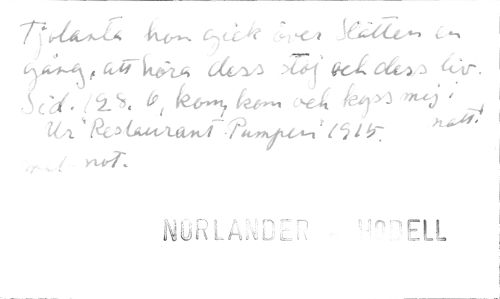 Tjolanta hon gick över slätten en
gång, att höra dess stoj och dess liv.
Sid. 128. O, kom, kom och kyss mej i
natt!
Ur "Restaurant Pumpen" 1915.
med not.
NORLANDER - HODELL